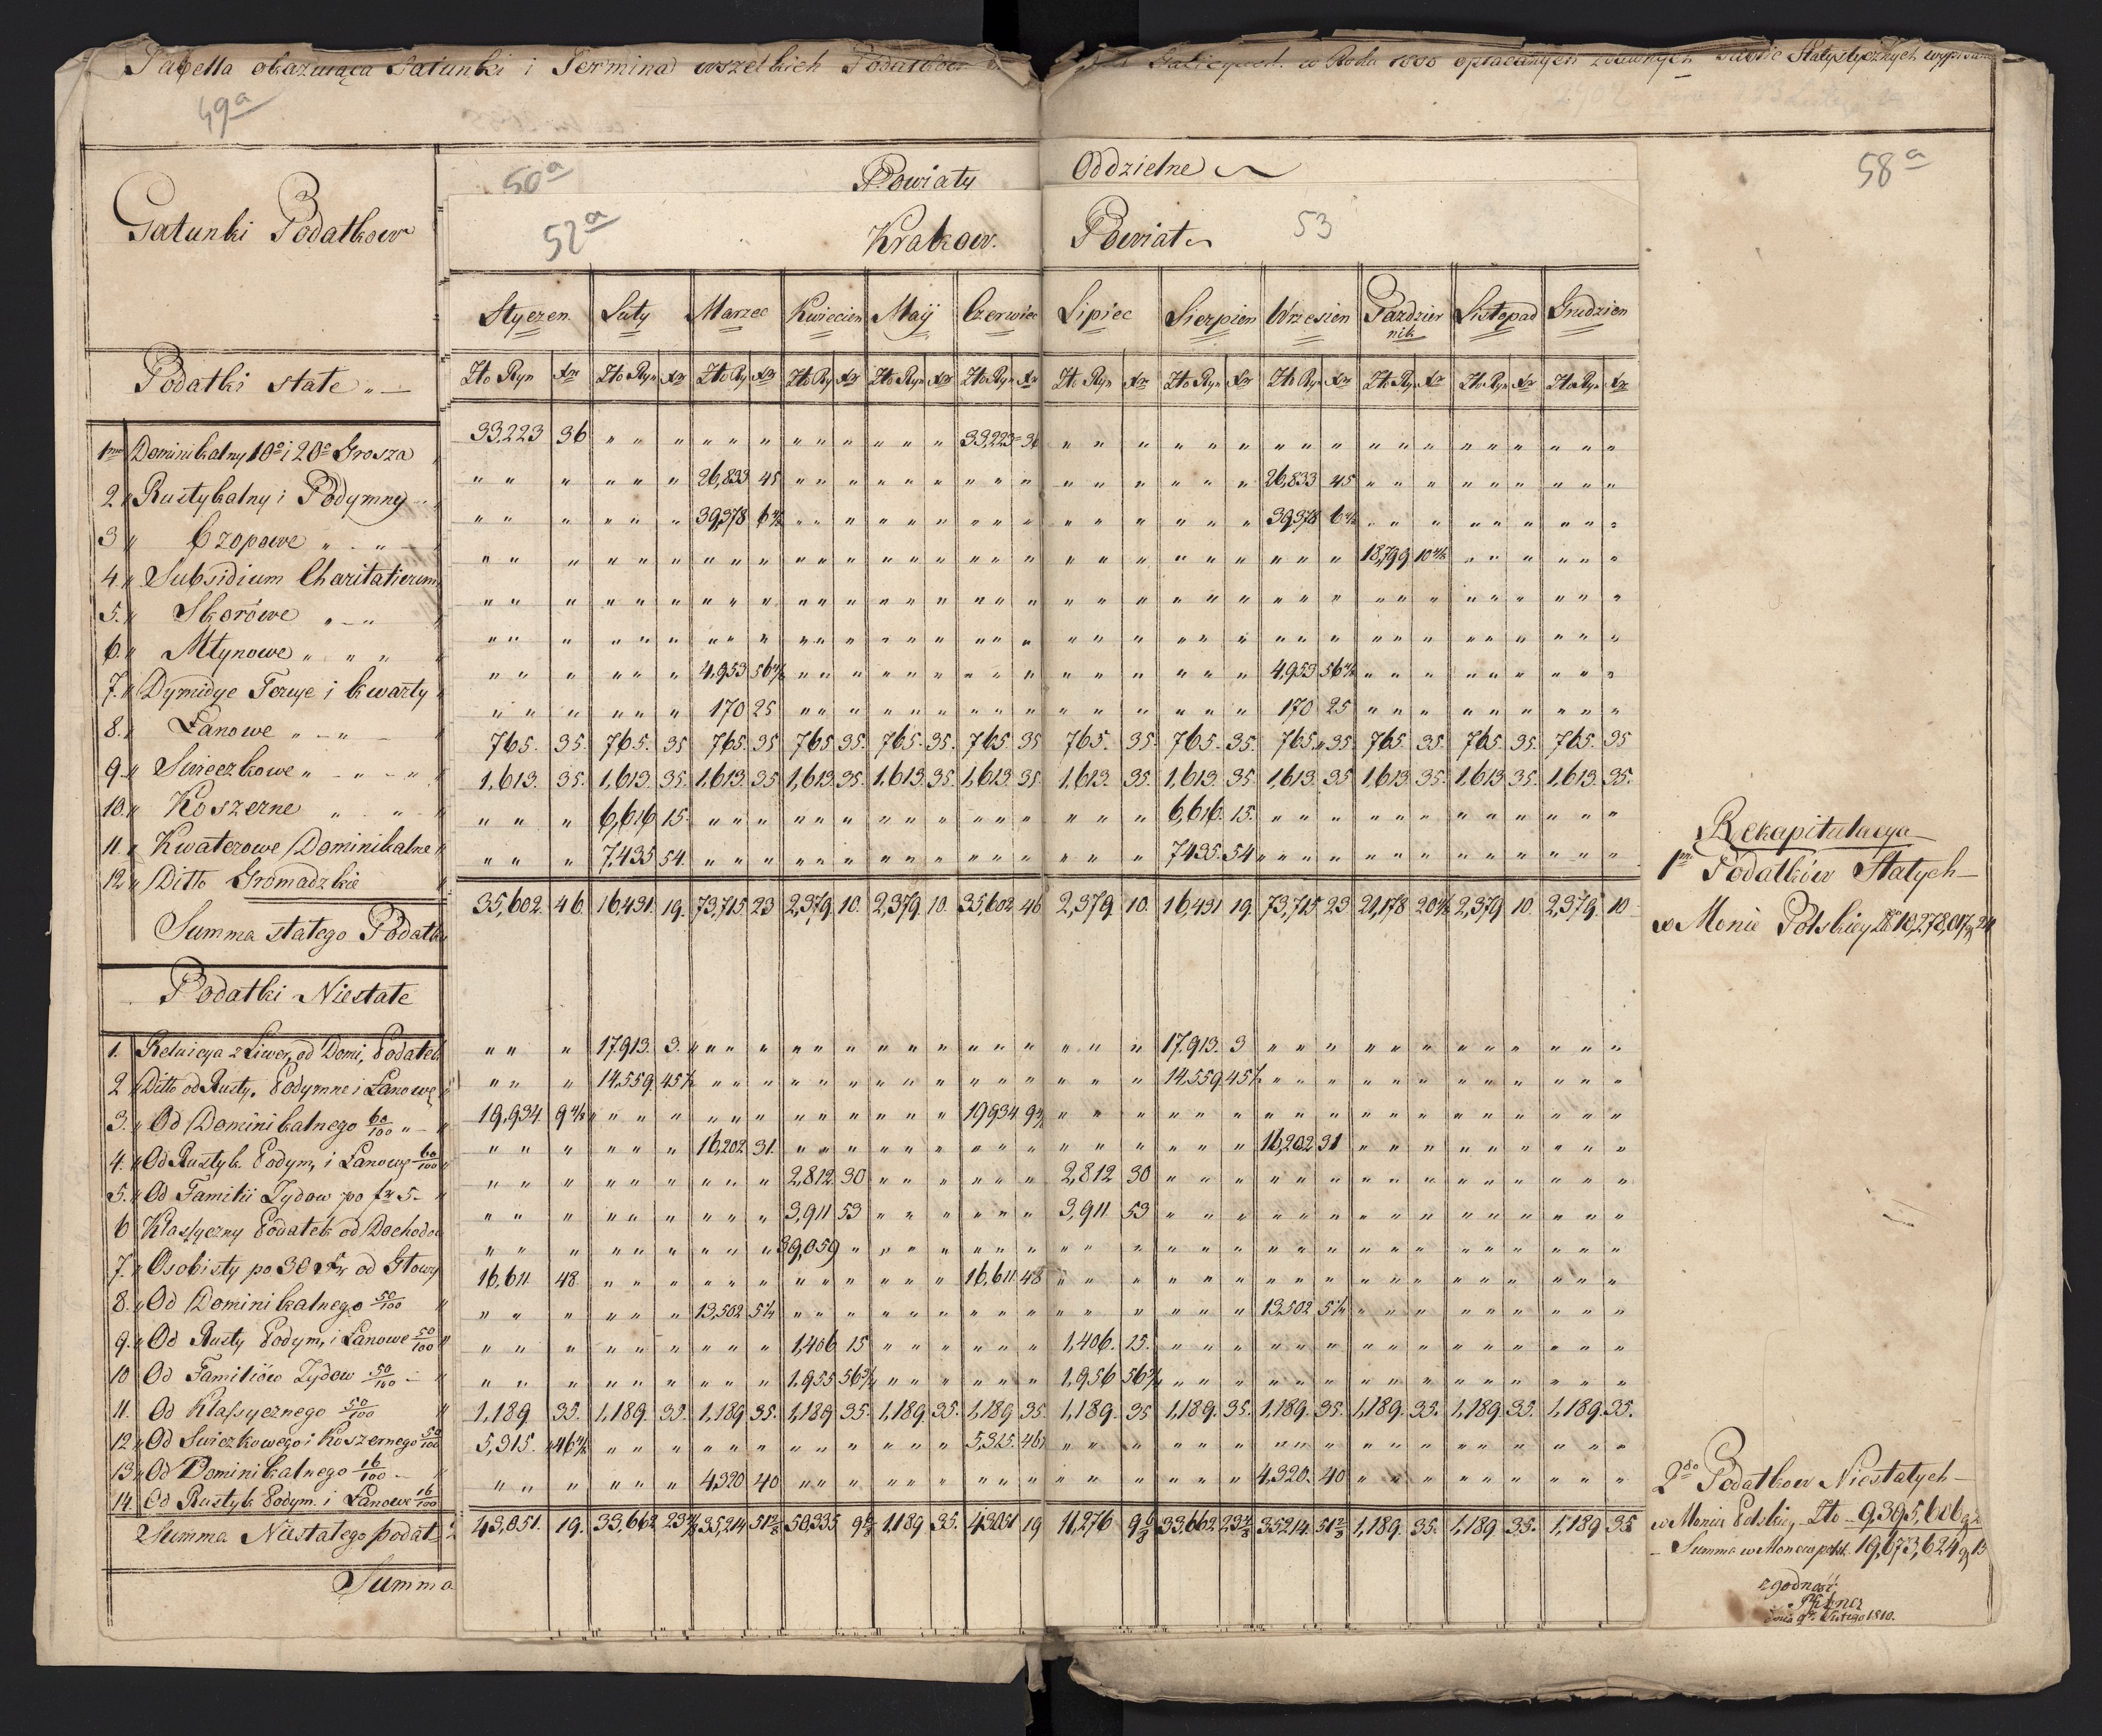 Tabella okazuiąca Gatunki i Termina wszelkich Podatkow
Galicyach w Roku 1808 opłacanych Statystycznych
49a
50a Powiaty Oddzielne 58a
Gatunki Podatkow
52a Krakow. Powiat 53
Styczen Luty Marzec Kwiecien Maij Czerwiec Lipiec Sierpien Wrzesien Pazdziernik Listopad Grudzien
Podatki stałe „ —
Zło Ryn Xr Zło Ryn Xr Zło Ry Xr Zło Ry Xr Zło Ryn Xr Zło Ryn Xr Zło Ryn Xr Zło Ryn Xr Zło Ryn Xr Zło Ry Xr Zło Ryn Xr Zło Ryn Xr
1mo Dominikalny 10o i 20o Grosza 33,223 36 33,223 36
2 „ Rustykalny i Podymny 26,833 45 26,833 45
3 „ Czopowe 39,378 6 2/4 39,378 6 2/4
4. „ Subsidium Charitativum 18,799 10 2/4
5. „ Skorówe
6. „ Młynowe
7. „ Dymidye Tercye i kwarty 4,953 56 2/4 4,953 56 2/4
8. „ Łanowe 170 25 170 25
9. „ Swieczkowe 765. 35. 765. 35 765. 35 765 35. 765. 35. 765 35 765. 35. 765. 35. 765 35 765 35. 765. 35. 765. 35
10. „ Koszerne 1,613. 35. 1,613. 35. 1,613. 35 1,613. 35. 1,613. 35. 1,613 35. 1,613. 35. 1,613. 35 1,613. 35 1,613 35. 1,613 35. 1,613. 35.
11. „ Kwaterowe Dominikalne 6,616 15. 6,616. 15.
12 „ Ditto Gromadzkie 7,435 54. 7435. 54
Summa stałego Podatku 35,602. 46. 16,431. 19. 73,715 23 2,379. 10. 2,379. 10. 35,602 46 2,379. 10. 16,431 19 73,715 23 21,178 20 2/4 2,379 10. 2,379. 10
Rekapitulacya
1mo Podatków Stałych
w Monie Polskiey Zło 10,278,017 gr 24
Podatki Niestałe
1. Reluicya z Liwer, od Domi, Podatek 17,913. 3. 17,913. 3
2 „ Ditto od Rusty. Podymne i Łanowe 14,559. 45 1/2 14,559 45 1/2
3. „ Od Dominikalnego 60/100 19,934 9 2/4 19934. 9 2/4
4. „ Od Rustyk. Podym, i Łanowe 60/100 16,202 31. 16,202 31
5. „ Od Familii Zydow po fr 5 2,812. 30 2,812 30
6 Klassyczny Podatek od Dochodow 3,911 53 3,911 53
7. „ Osobisty po 30 Xr od Głowy 39,059
8. „ Od Dominikalnego 50/100 16,611 48 16,611 48
9. „ Od Rusty Podym, i Łanowe 50/100 13,502 5 1/4 13,502 5 1/4
10 Od Familiów Zydow 50/100 1,406 15 1,406. 25.
11. Od Klassycznego 50/100 1,955 56 2/4 1,956 56 2/4
12 „ Od Swiczkowego i Koszernego 50/100 1,189 35. 1,189. 35. 1,189 35. 1,189 35. 1,189 35. 1,189 35 1,189. 35 1,189. 35. 1,189. 35. 1,189. 35. 1,189. 35. 1,189. 35.
13 „ Od Dominikalnego 16/100 5,315. 46 2/4 5,315. 46
14. Od Rustyk Podym. i Łanowe 16/100 4,320 40 4,320. 40
Summa Niestałego podat 43,051. 19. 33,662 23 2/4 35,214 51 2/8 50,335 9 6/8 1,189 35. 43051 19 11,276 9 6/8 33,662. 23 2/4 35214. 51 2/8 1,189. 35. 1,189. 35. 1,189 35
Summa
2do Podatkow Niestałych
w Monie Polskiey Zło 9,395,606 gr
Summa w Monecie polsk. 19,673,624 gr 13
zgodność
dnia 9go Lutego 1810.